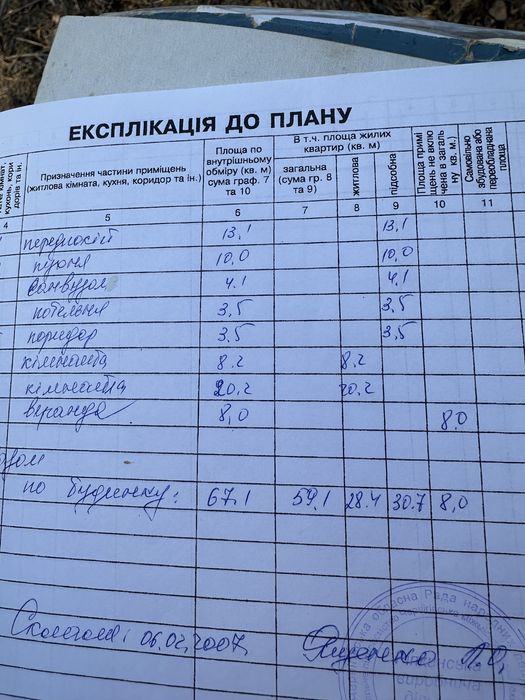 ЕКСПЛІКАЦІЯ ДО ПЛАНУ
кімнат, кухонь, кори дорів та ін.
Призначення частини приміщень (житлова кімната, кухня, коридор та ін.)
Площа по внутрішньому обміру (кв. м) сума граф. 7 та 10
В т.ч. площа жилих квартир (кв. м)
загальна (сума гр. 8 та 9)
житлова
підсобна
Площа примі щень не вклю чена в загаль ну (кв. м.)
Самовільно збудована або переобладнана площа
4 5 6 7 8 9 10 11
передпокій 13,1 13,1
кухня 10,0 10,0
санвузол 4,1 4,1
котельня 3,5 3,5
коридор 3,5 3,5
кімната 8.2 8.2
кімната 20,2 20,2
веранда 8,0 8.0
по будинку: 67.1 59,1 28.4 30.7 8,0
06.02.2007